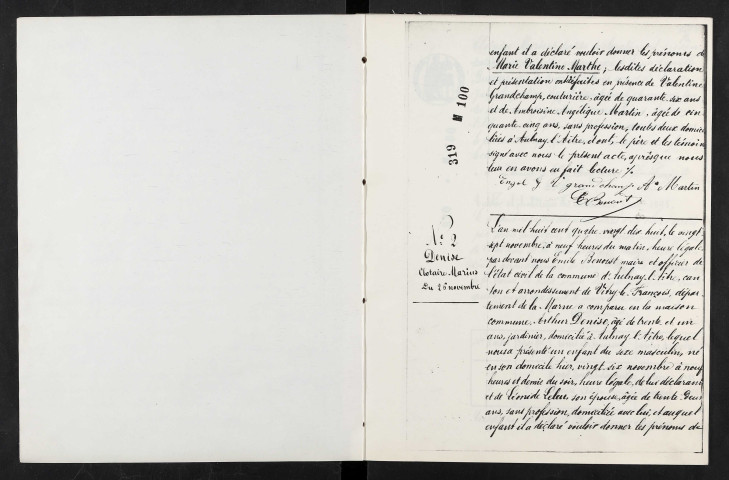 enfant il a déclaré vouloir donner les prénoms de
Marie Valentine Marthe ; lesdites déclaration
et présentation ont été faites en présence de Valentine
Grandchamp, couturière, âgée de quarante six ans
et de Ambroisine Angélique Martin, âgée de cin
quante cinq ans, sans profession, toutes deux domici
liées à Aulnay l'Aître, dont, le père et les témoins
signé avec nous le présent acte, après que nous
leur en avons eu fait lecture /.
V grandchamp A Martin
E Benoist
319 M 100
No 2
Denise
Clotaire Marius
Du 26 novembre
L'an mil huit cent quatre vingt dix huit, le vingt
sept novembre, à neuf heures du matin, heure légale
par devant nous Emile Benoist maire et officier de
l'état civil de la commune d'Aulnay l'Aître, can
ton et arrondissement de Vitry le François, dépar
tement de la Marne a comparu en la maison
commune, Arthur Denise, âgé de trente et un
ans, jardinier, domicilié à Aulnay l'Aître, lequel
nous a présenté un enfant du sexe masculin, né
en son domicile hier, vingt six novembre à neuf
heures et demie du soir, heure légale, de lui déclarant
et de Léonide son épouse, âgée de trente deux
ans, sans profession, domiciliée avec lui, et auquel
enfant il a déclaré vouloir donner les prénoms de